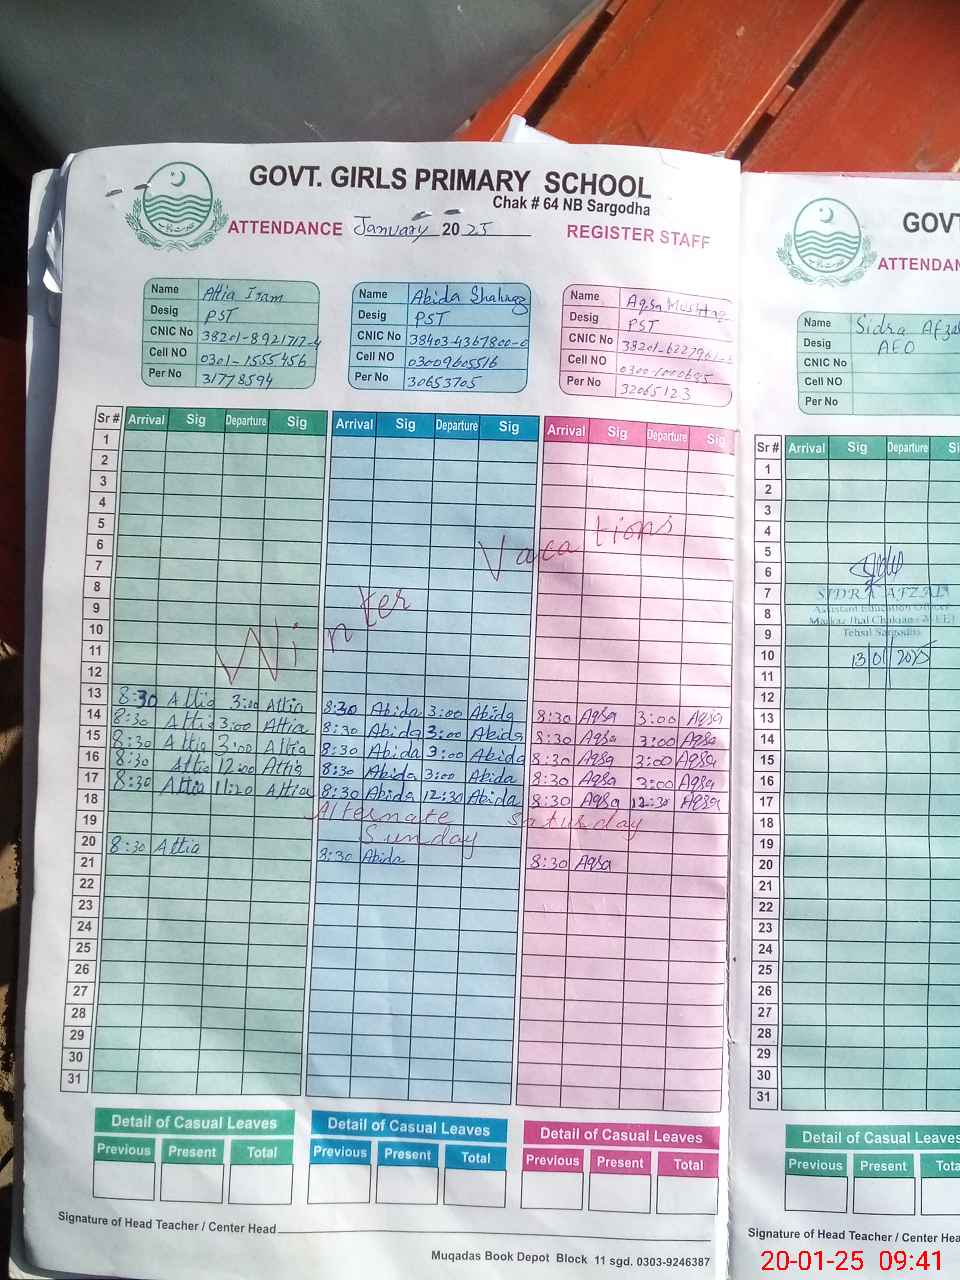 GOVT. GIRLS PRIMARY SCHOOL
Chak # 64 NB Sargodha
ATTENDANCE January 2025 REGISTER STAFF
Name Attia Iram
Desig PST
CNIC No 38201-8921717-4
Cell NO 0301-1555456
Per No 31778594
Name Abida Shahnaz
Desig PST
CNIC No 38403-4367800-0
Cell NO 03009605516
Per No 30653705
Name Aqsa Mushtaq
Desig PST
CNIC No
Cell NO
Per No 32065123
Sr # Arrival Sig Departure Sig Arrival Sig Departure Sig Arrival Sig Departure Sig
1
2
3
4
5
6
7
8
9
10
11
12
Winter Vacations
13 8:30 Attia 3:00 Attia 8:30 Abida 3:00 Abida 8:30 Aqsa 3:00 Aqsa
14 8:30 Attia 3:00 Attia 8:30 Abida 3:00 Abida 8:30 Aqsa 3:00 Aqsa
15 8:30 Attia 3:00 Attia 8:30 Abida 3:00 Abida 8:30 Aqsa 3:00 Aqsa
16 8:30 Attia 12:00 Attia 8:30 Abida 3:00 Abida 8:30 Aqsa 3:00 Aqsa
17 8:30 Attia 11:20 Attia 8:30 Abida 12:30 Abida 8:30 Aqsa 12:30 Aqsa
18 Alternate Saturday
19 Sunday
20 8:30 Attia 8:30 Abida 8:30 Aqsa
21
22
23
24
25
26
27
28
29
30
31
Detail of Casual Leaves Detail of Casual Leaves Detail of Casual Leaves
Previous Present Total Previous Present Total Previous Present Total
Signature of Head Teacher / Center Head
Muqadas Book Depot Block 11 sgd. 0303-9246387
GOVT
ATTENDAN
Name Sidra Afzal
Desig AEO
CNIC No
Cell NO
Per No
Sr # Arrival Sig Departure Si
1
2
3
4
5
6
7
8
9
10
11
12
13
14
15
16
17
18
19
20
21
22
23
24
25
26
27
28
29
30
31
SIDRA AFZAL
Assistant Education Officer
Tehsil Sargodha
13/01/2025
Detail of Casual Leaves
Previous Present Tota
Signature of Head Teacher / Center Hea
20-01-25 09:41